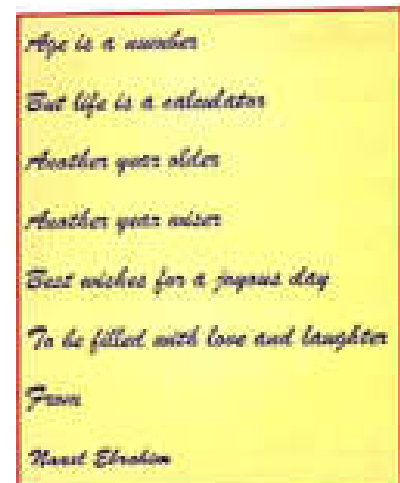 Age is a number
But life is a calculator
Another year older
Another year wiser
Best wishes for a joyous day
To be filled with love and laughter
From
Ebrahim